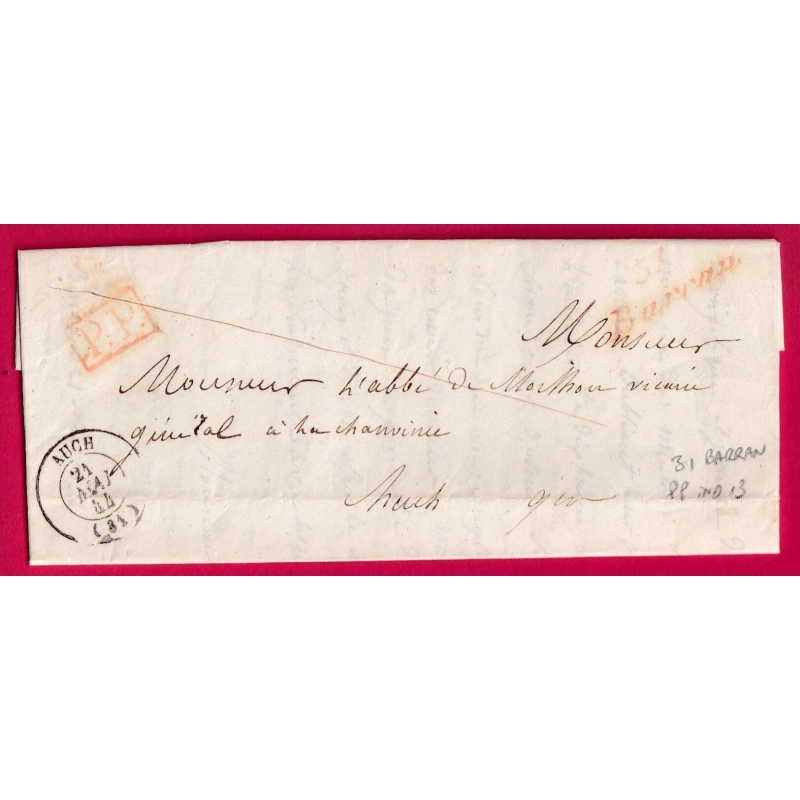 P.P.
31
Barran
Monsieur
Monsieur l'abbé de Morlhon vicaire
général à la chanoinie
Auch gers
AUCH
21
MAI
44
(31)
31 BARRAN
PP IND 13